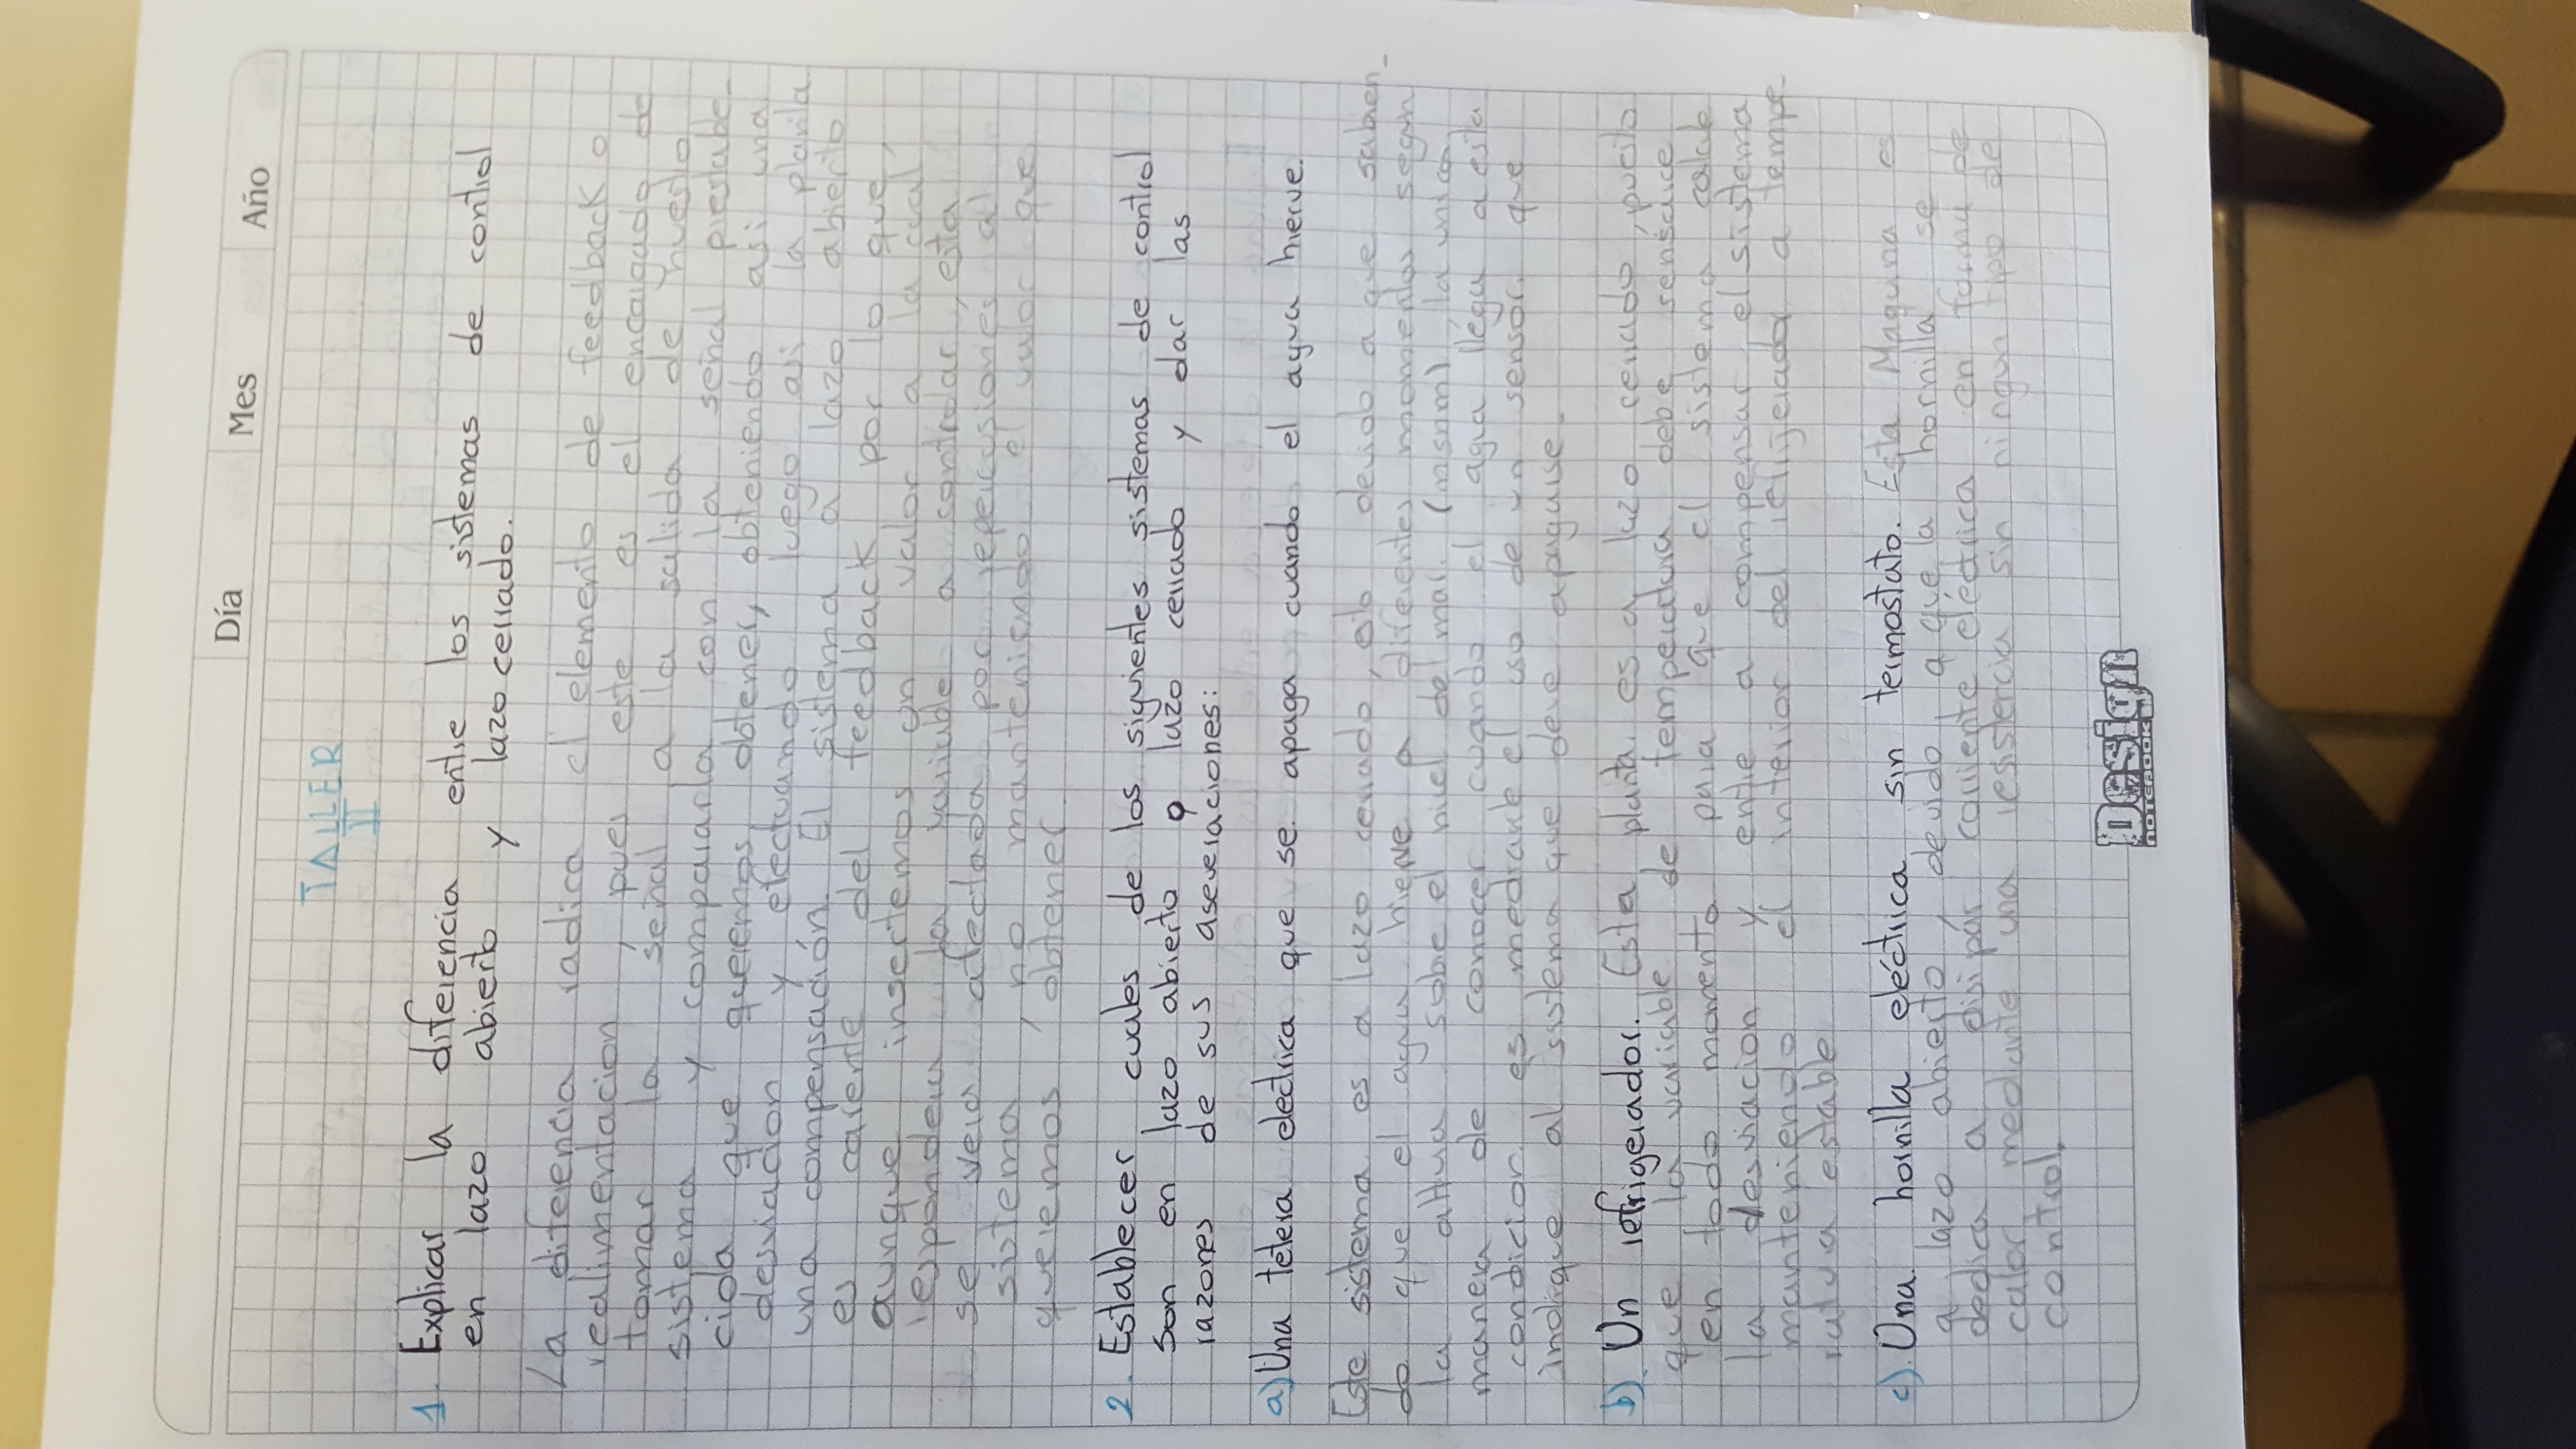 Día Mes Año
TALLER
II
1. Explicar la diferencia entre los sistemas de control
en lazo abierto y lazo cerrado.
La diferencia radica el elemento de feedback o
realimentacion, pues este es el encargado de
tomar la señal a la salida de nuestro
sistema y compararla con la señal prestable-
cida que queremos obtener, obteniendo asi una
desviacion y efectuando luego asi la planta
una compensación. El sistema a lazo abierto
es carente del feedback por lo que,
aunque insertemos un valor a la cual
respondera la variable a controlar, esta
se vera afectada por repercusiones al
sistema, no manteniendo el valor que
queremos obtener.
2. Establecer cuales de los siguientes sistemas de control
son en lazo abierto o lazo cerrado y dar las
razones de sus aseveraciones:
a) Una tetera electrica que se apaga cuando el agua hierve.
Este sistema es a lazo cerrado, esto devido a que sabien-
do que el agua hierve a diferentes momentos segun
la altura sobre el nivel del mar. (msnm), la unica
manera de conocer cuando el agua llega a esta
condicion es mediante el uso de un sensor que
indique al sistema que deve apagarse.
b) Un refrigerador. Esta planta es a lazo cerrado, puesto
que la variable de temperatura debe sensarce
en todo momento para que el sistema calcule
la desviacion y entre a compensar el sistema
manteniendo el interior del refrijerador a tempe-
ratura estable
c). Una hornilla eléctrica sin termostato. Esta Maquina es
a lazo abierto, devido a que la hornilla se
dedica a disipar corriente eléctrica en forma de
calor mediante una resistencia sin ningun tipo de
control.
Design
NOTEBOOK